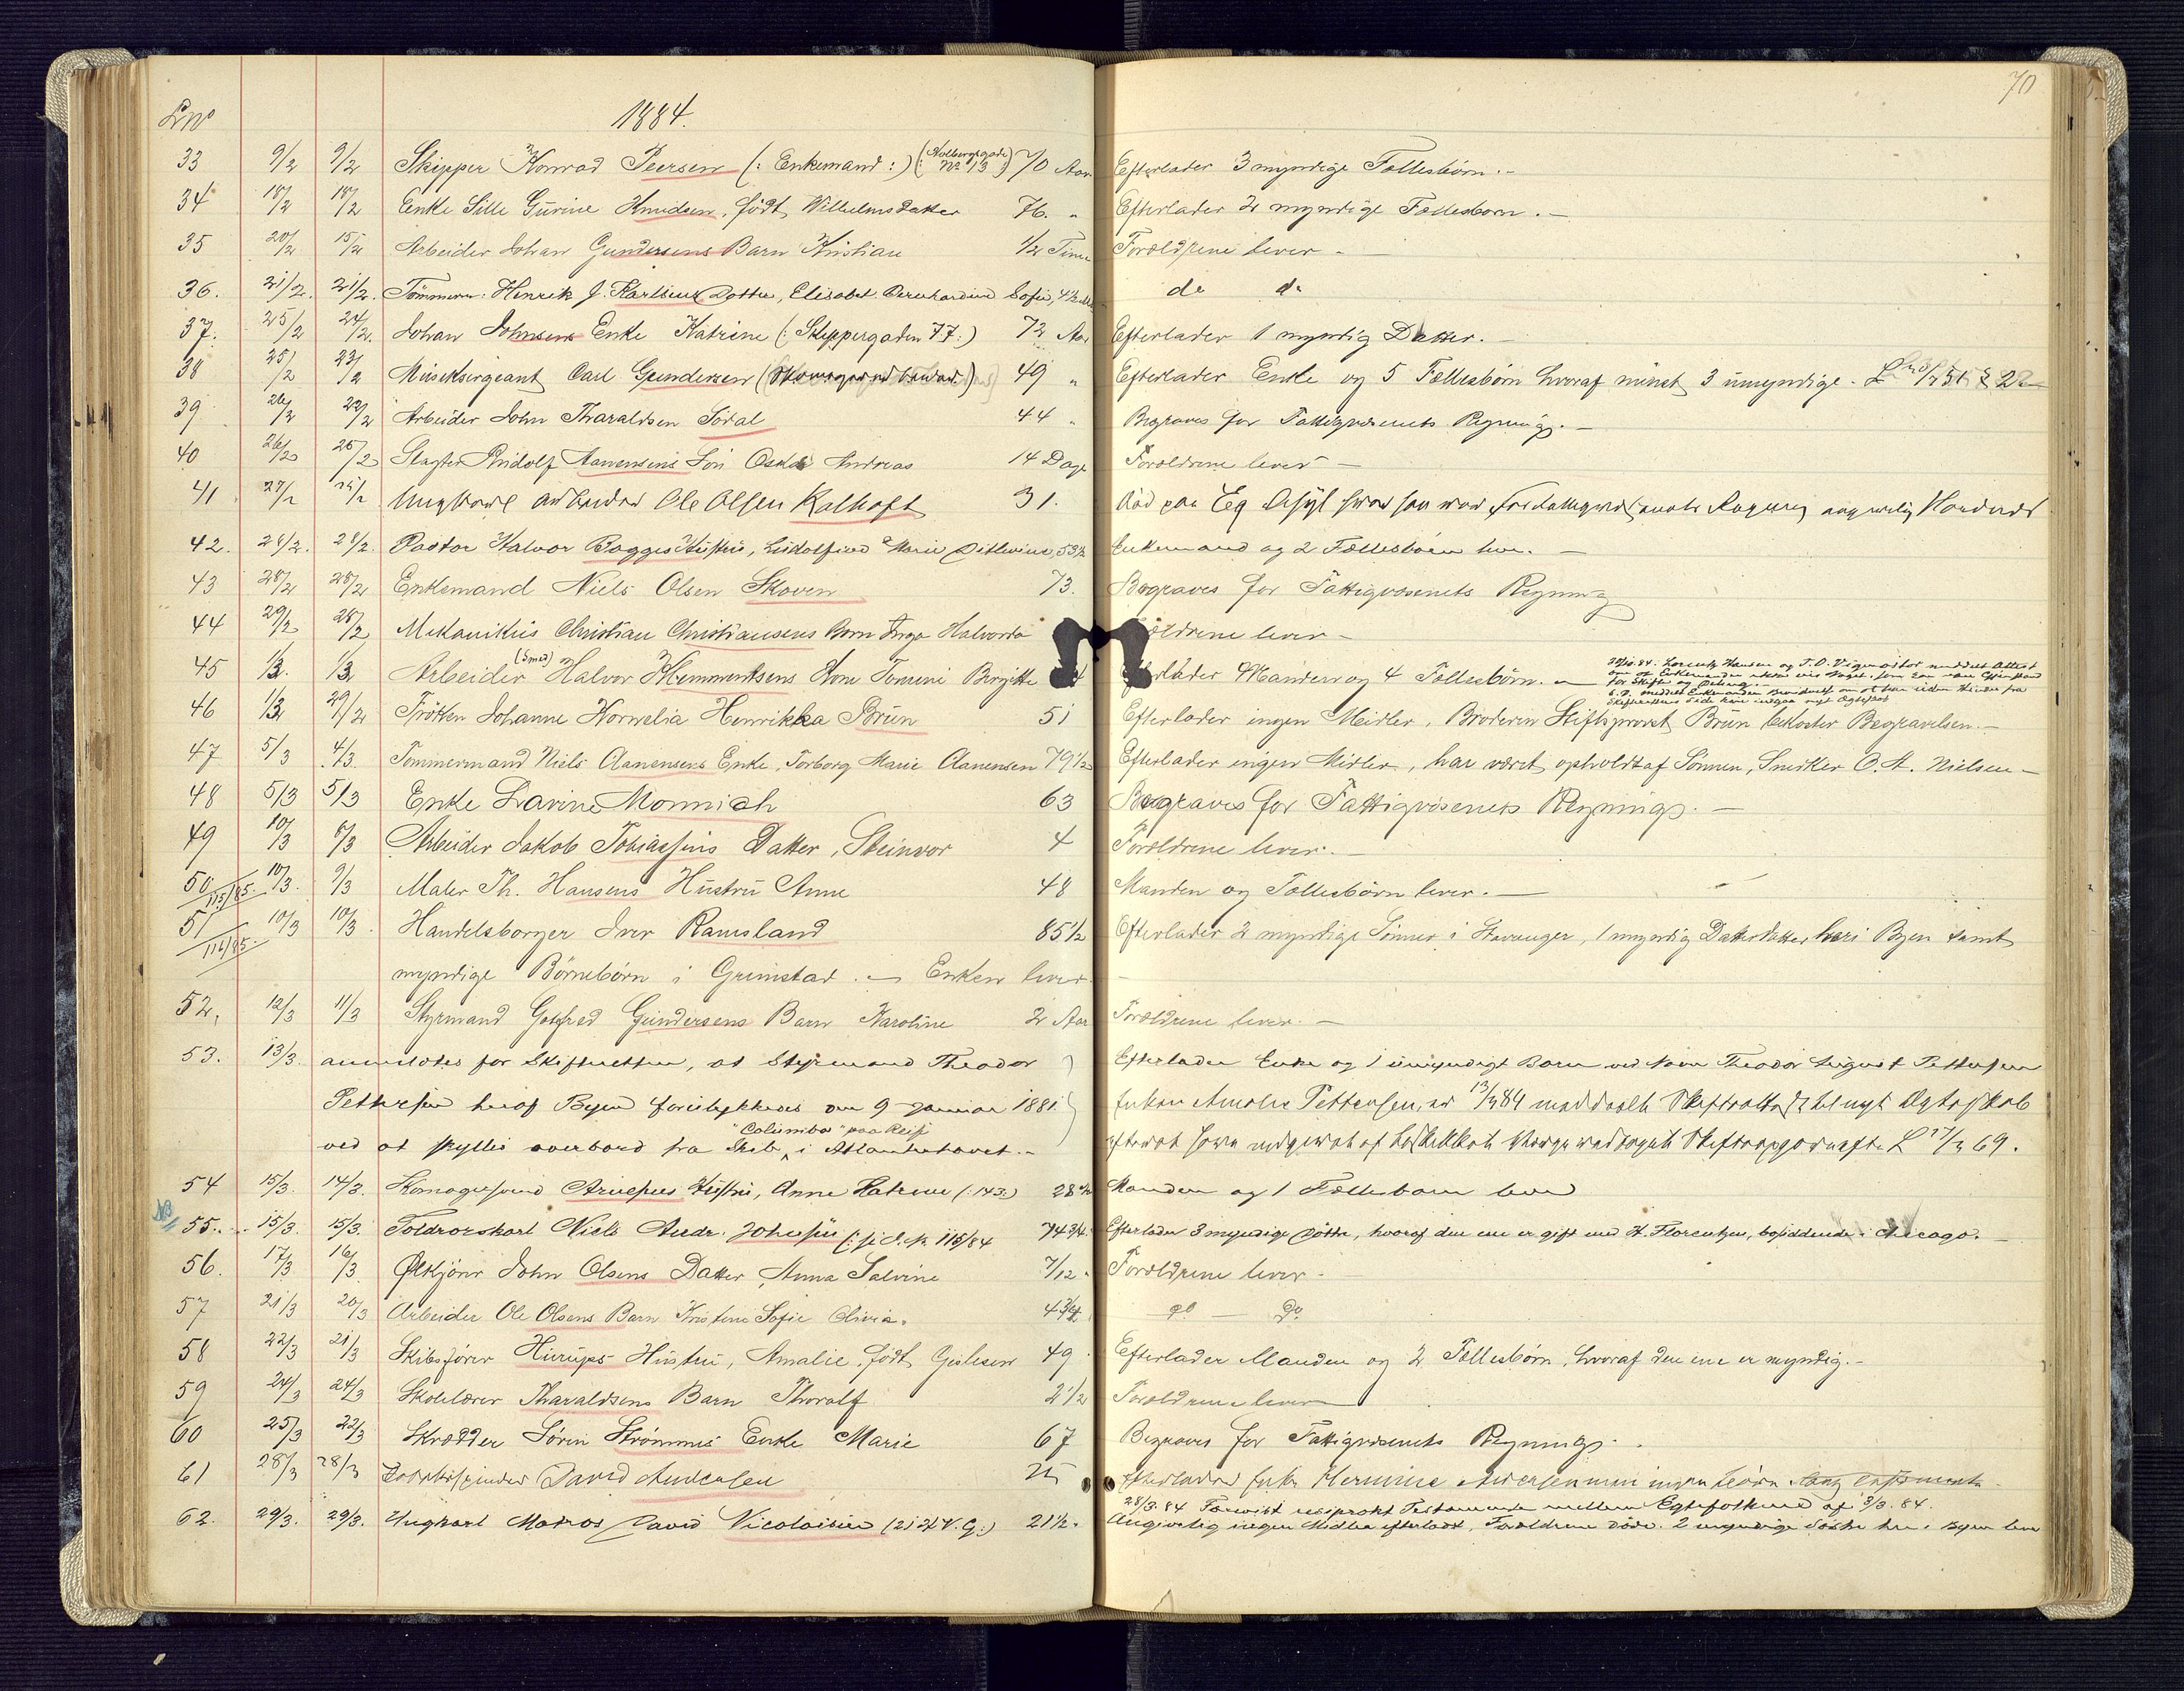 70
LNo 1884.
33 9/2 9/2 Skipper Konrad Peersen (: Enkemand :) (: Holbergsgade No 13 :) 70 Aar Efterlader 3 myndige Fællesbörn. -
34 18/2 18/2 Enke Sille Gurine Knudsen, födt Wilhelmsdatter 76. " Efterlader 2 myndige Fællesbörn. -
35 20/2 15/2 Arbeider Johan Gundersens Barn Kristian 1/2 Time Forældrene lever -
36. 21/2. 21/2. Tömmerm. Henrik J. Karlsens Dotter, Elisabet Bernhardine Sofie, 4 1/2 do do
37. 25/2 24/2. Johan Johnsens Enke Katrine (: Skippergaden 77 :) 72 Aar Efterlader 1 myndig Datter. -
38 25/2 23/2 Musiksergeant Carl Gundersen 49 " Efterlader Enke og 5 Fællesbörn hvoraf minst 3 umyndige. -
39 26/2 22/2 Arbeider John Tharaldsen Södal 44 " Begraves for Fattigvæsenets Regning. -
40 26/2 25/2 Slagter Rudolf Aanensens Sön Oskar Andreas 14 Dage Forældrene lever -
41. 27/2 25/2 Ungkarl Arbeider Ole Olsen Kalhoft 31. Död paa Eg Asyl hvor han var for Fattigvæsenets Regning
42. 28/2. 28/2. Pastor Halvor Bogges Hustru, Ludolfine Marie Ditlevine, 53 1/2 Enkemand og 2 Fællesbörn lever. -
43 28/2 28/2 Enkemand Niels Olsen Skoven 73. Begraves for Fattigvæsenets Regning
44 29/2 28/2 Mekanikus Christian Christiansens Barn Inga Halvorda Forældrene lever -
45 1/3. 1/3 Arbeider (Smed) Halvor Klemmentsens Kone Tomine Birgitte Efterlader Manden og 4 Fællesbörn. -
46 1/3 29/2 Fröken Johanne Kornelia Henrikka Brün 51 Efterlader ingen Midler. Broderen Stiftsprovst Brün bekoster Begravelsen. -
47 5/3 4/3. Tömmermand Niels Aanensens Enke, Torborg Marie Aanensen 79 1/2 Efterlader ingen Midler, har været opholdt af Sönnen, Snedker O. A. Nielsen -
48 5/3 5/3 Enke Lavine Monnich 63 Begraves for Fattigvæsenets Regning. -
49 10/3 8/3 Arbeider Jakob Tobiassens Datter, Steinvor 4 Forældrene lever. -
50 115/85. 10/3. 9/3 Maler Th. Hansens Hustru Anne 48 Manden og Fællesbörn lever. -
51 116/85. 10/3 10/3. Handelsborger Iver Ramsland 85 1/2 Efterlader 2 myndige Sönner i Stavanger, 1 myndig Datterdatter her i Byen samt
myndige Börnebörn i Grimstad. - Enken lever. -
52, 12/3 11/3 Styrmand Gotfred Gundersens Barn Karoline 2 Aar Forældrene lever. -
53. 13/3. anmeldtes for Skifteretten, at Styrmand Theodor Efterlader Enke og 1 umyndigt Barn ved Navn Theodor August Pettersen
Pettersen heraf Byen forulykkedes den 9 Januar 1881 Enken Amalie Pettersen, er 13/3 84 meddelt Skifterettens til nyt Ægteskab
"Columba" paa Reise
ved at skylles overbord fra Skib, i Atlanterhavet. - L 17/3 69.
54 15/3. 14/3. Skomagersvend Arnesens Hustru, Anne Katrine (: 143 :) 28 Manden og 1 Fællesbarn lever
NB 55. 15/3. 15/3. Toldroerskarl Niels Andr. Johnsen 115/84 74 3/4 Efterlader 3 myndige Döttre, hvoraf den ene er gift med H. Florentzen, bosiddende i Chicago. -
56. 17/3 16/3 Ølkjörer John Olsens Datter Anna Salvine 7/12. Forældrene lever -
57 21/3 20/3 Arbeider Ole Olsens Barn Kristine Sofie Olivia. 4 3/4 do do
58 22/3 21/3 Skibsförer Hurups Hustru, Amalie, födt Gislesen 49 Efterlader Manden og 2 Fællesbörn, hvoraf den ene er myndig. -
59 24/3 24/3 Skolelærer Tharaldsens Barn Thoralf 2 1/2 Forældrene lever
60 25/3 22/3 Skrædder Sören Strömmes Enke Marie 67 Begraves for Fattigvæsenets Regning. -
61 28/3 28/3 David Andersen Efterlader Enke Hermine Andersen men ingen börn
28/3. 84 Forevist resiprokt Testamente mellem Egtefolkene af 3/3. 84.
62. 29/3. 29/3. Ungkarl Matros David Nicolaisen 21 1/2. Angivelig ingen Midler efterladt, Forældrene döde. 2 myndige Söstre her i Byen lever